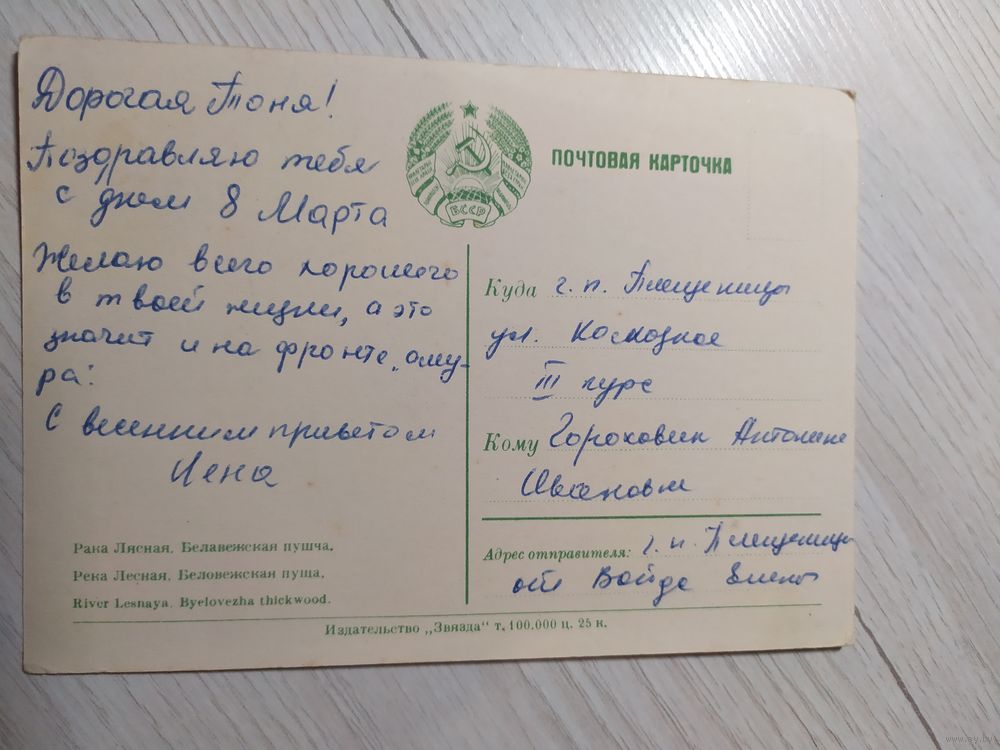 Дорогая Тоня!
Поздравляю тебя
с днем 8 Марта
Желаю всего хорошего
в твоей жизни, а это
значит и на фронте „аму-
ра".
С весенним приветом
Лена
БССР
ПОЧТОВАЯ КАРТОЧКА
Куда г. п. Плещеницы
ул.
III курс
Кому Горохович Антонине
Адрес отправителя: г. п. Плещеницы
от Войде
Рака Лясная. Белавежская пушча.
Река Лесная. Беловежская пуща.
River Lesnaya. Byelovezha thickwood.
Издательство „Звязда" т. 100.000 ц. 25 к.